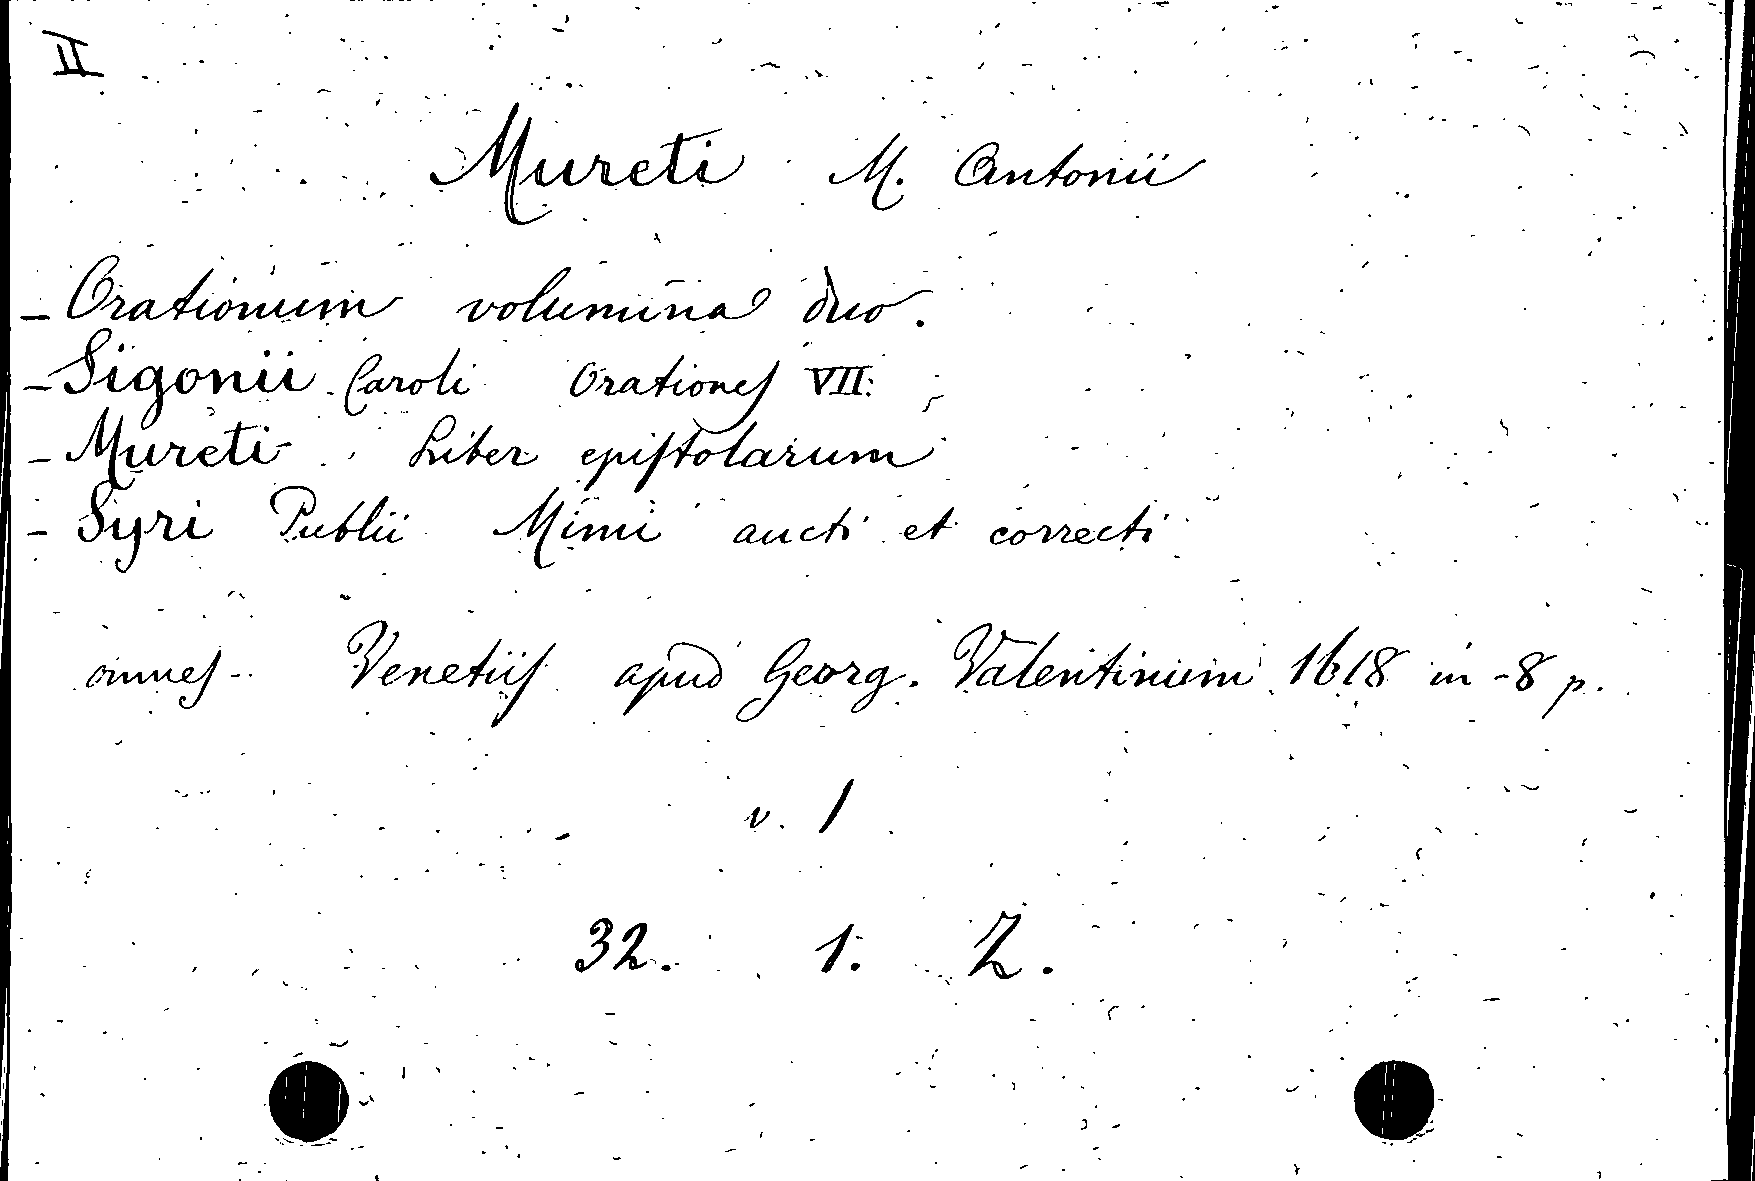 II
Mureti M. Antonii
- Orationum volumina duo.
- Sigonii Caroli Orationes VII:
- Mureti Liber epistolarum
- Syri Publii Mimi aucti et correcti
omnes - Venetiis apud Georg. Valentinum 1618 in -8 p.
v. 1
32. 1. Z.